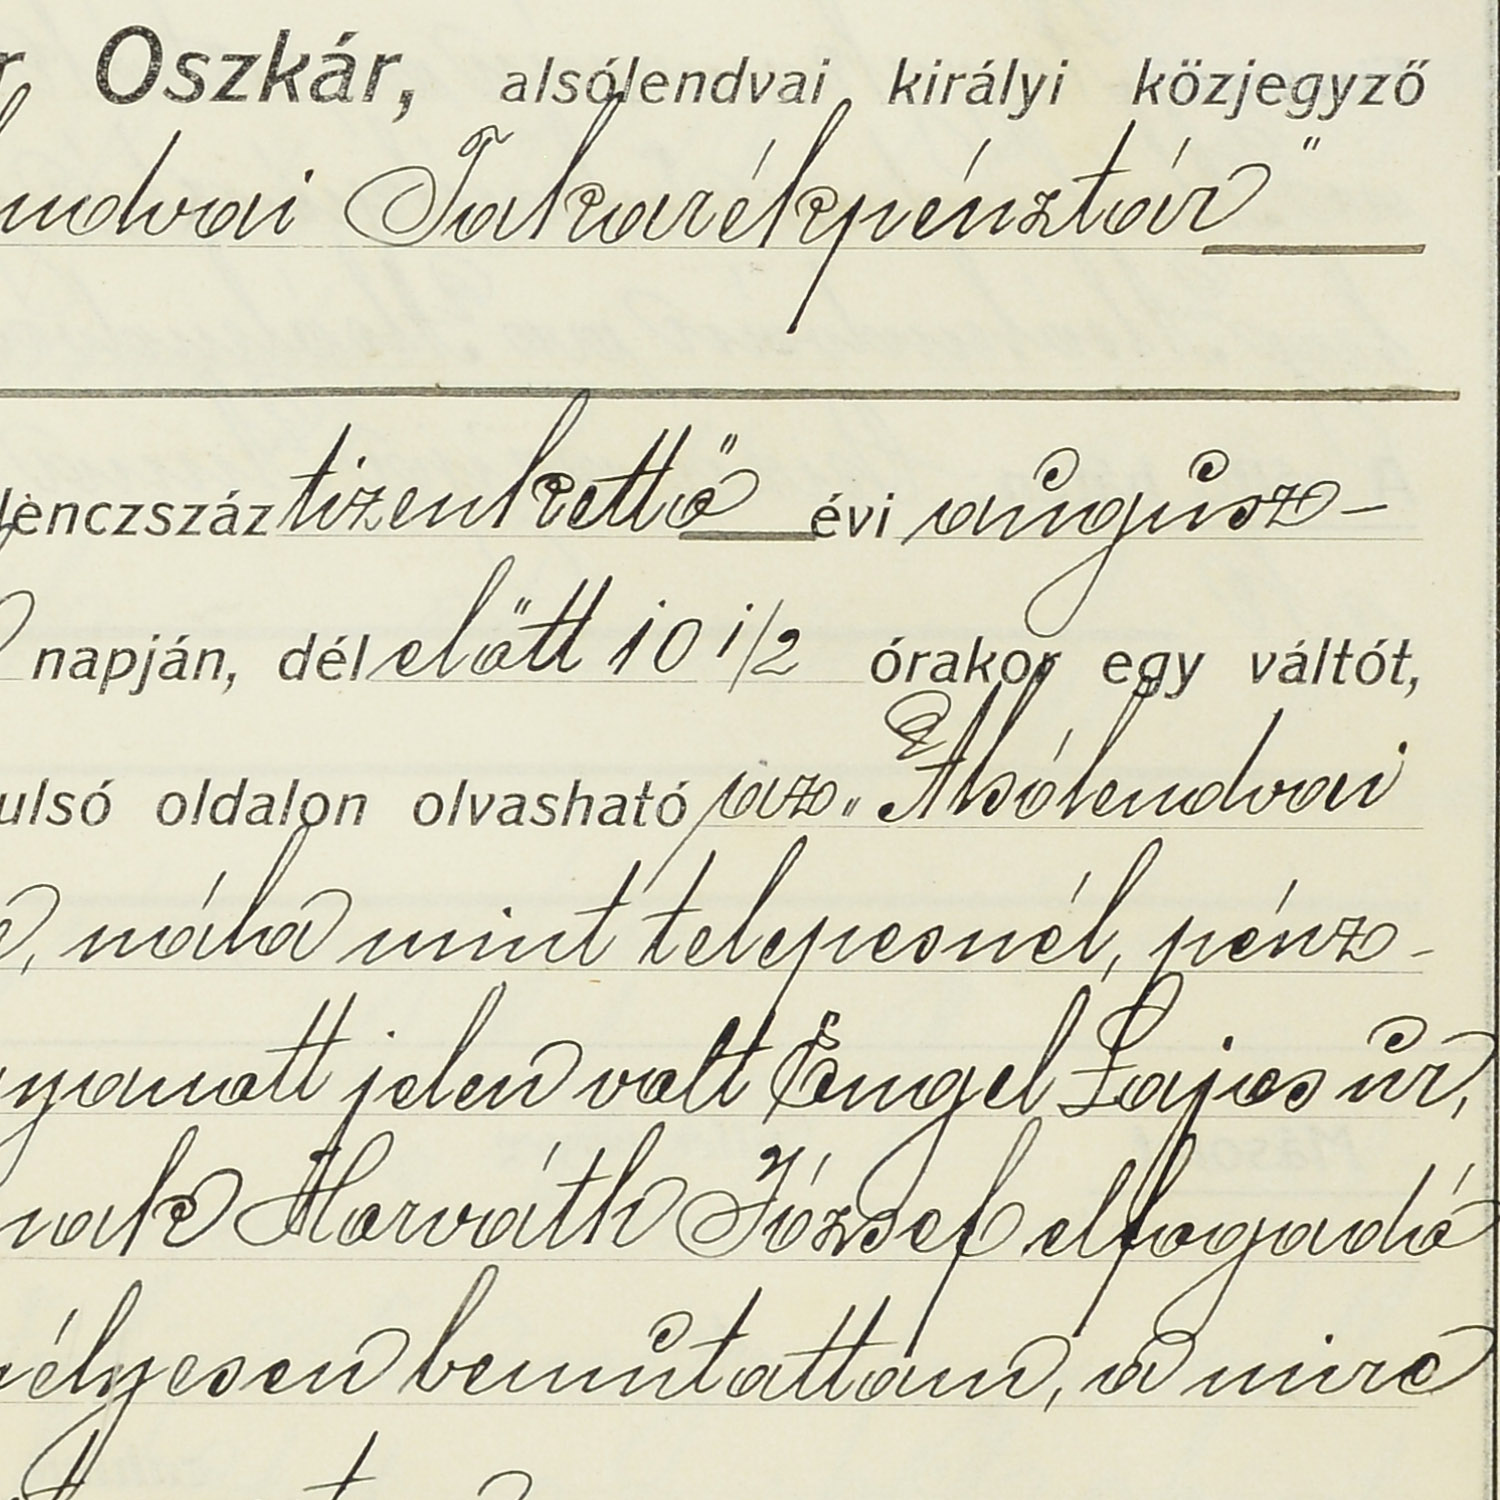 Oszkár, alsólendvai királyi közjegyző
ndvai Takarékpénztár"
lenczszáz tizenkettő évi augusz-
napján, délelőtt 10 1/2 órakor egy váltót,
ulsó oldalon olvasható az „Alsólendvai
nála mint telepesnél, pénz-
gyanott jelen volt Engel Lajos úr,
nak Horváth József elfogadó
mélyesen bemutattam, a mire